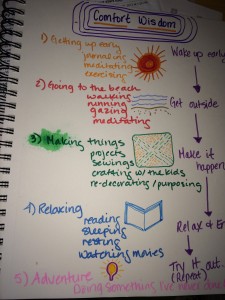 Comfort Wisdom
1) Getting up early
journaling
meditating
exercising
Wake up early
2) Going to the beach
walking
running
gazing
meditating
Get outside
3) Making things
projects
sewings
crafting w/ the kids
re-decorating/purposing
Make it
happen
4) Relaxing
reading
sleeping
resting
watching movies
Relax & En
Try it out
(Repeat)
5) Adventure
Doing something I've never done